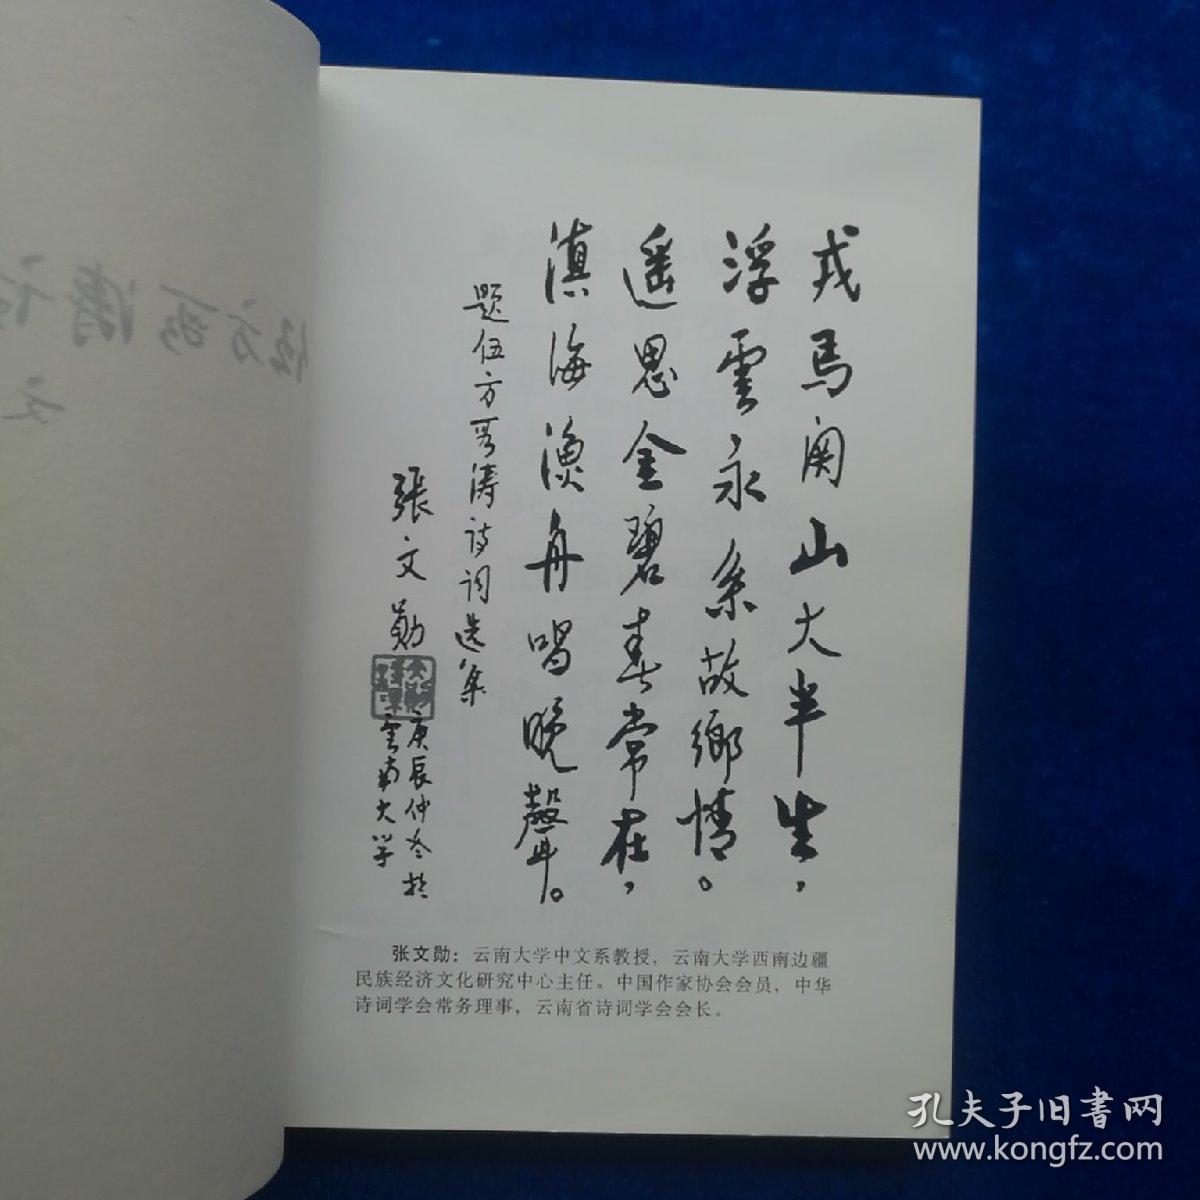 戎马関山大半生，
浮雲永系故鄉情。
遥思金碧春常在，
滇海漁舟唱晚聲。
题伍方哥涛诗词选集
張文勛
庚辰仲冬於
雲南大学
张文勋：云南大学中文系教授、云南大学西南边疆
民族经济文化研究中心主任。中国作家协会会员，中华
诗词学会常务理事，云南省诗词学会会长。
孔夫子旧書网
www.kongfz.com